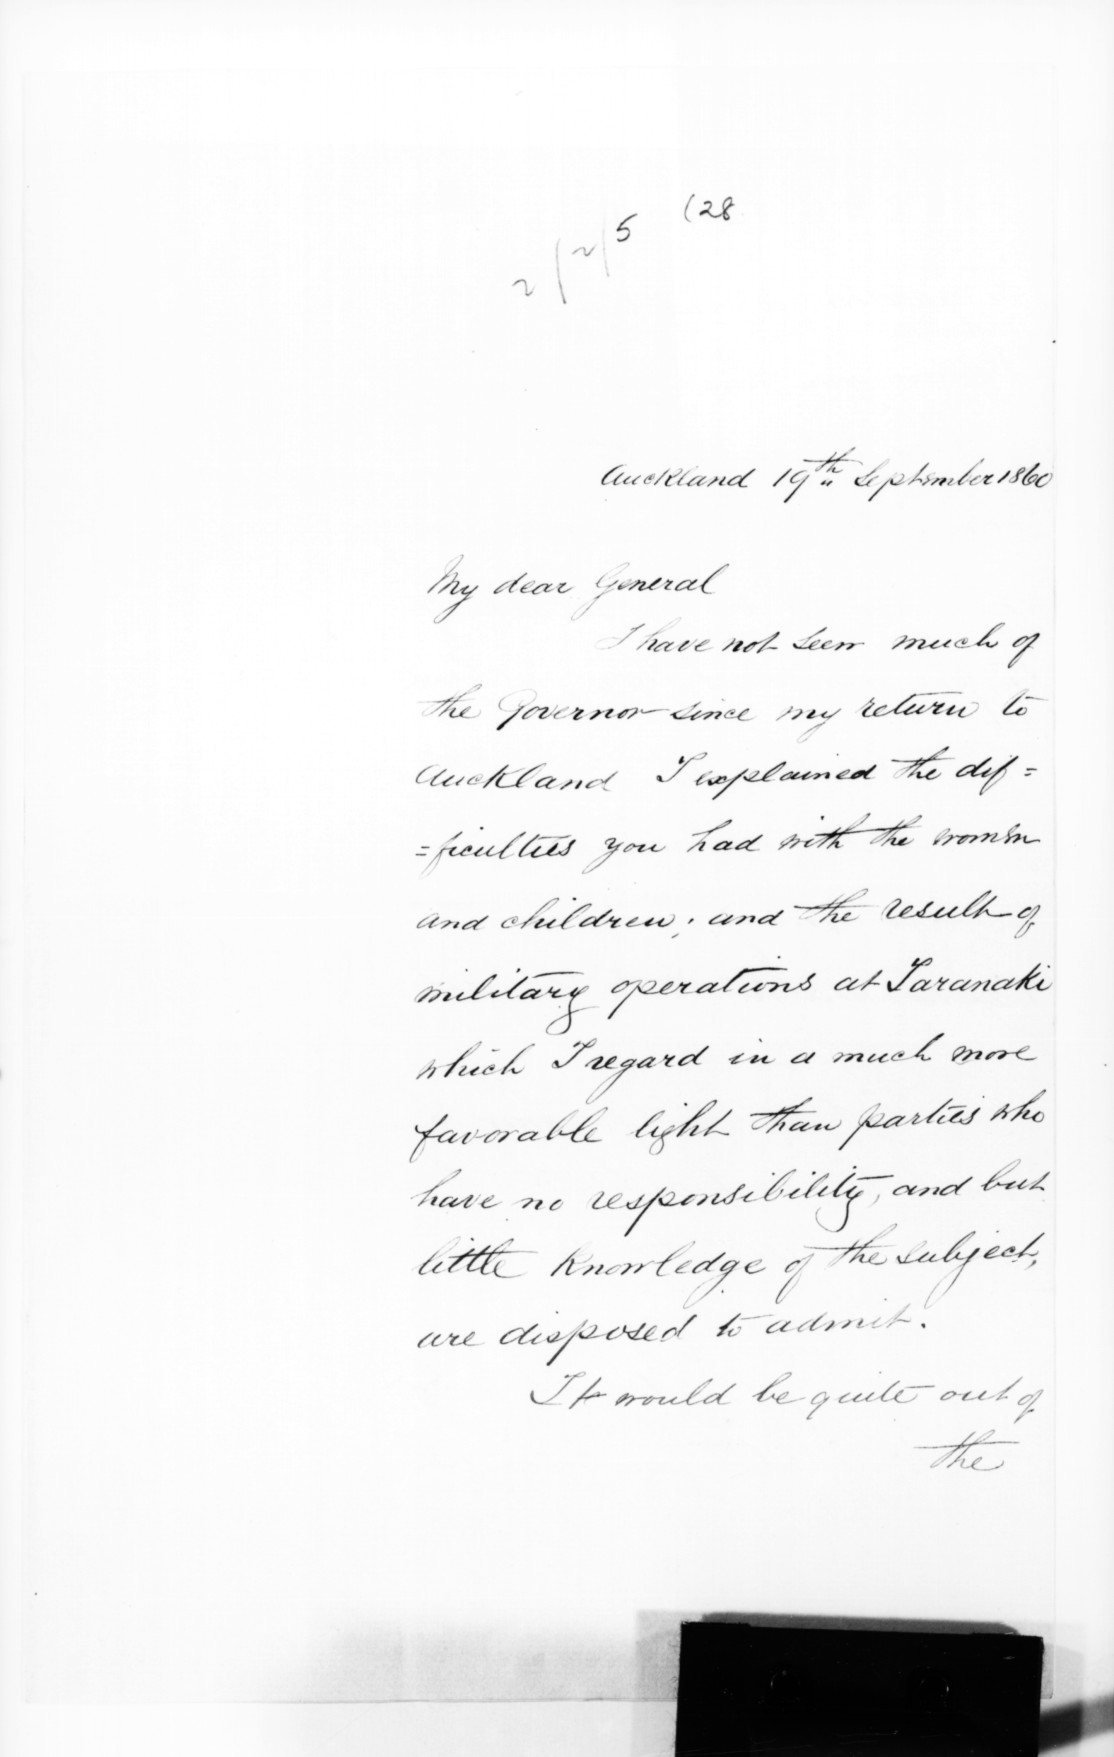 (28
2/2/5
Auckland 19th September 1860
My dear General
I have not seen much of
the Governor since my return to
Auckland I explained the dif=
=ficulties you had with the women
and children; and the result of
military operations at Taranaki
which I regard in a much more
favorable light than parties who
have no responsibility, and but
little knowledge of the subject,
are disposed to admit.
It would be quite out of
the